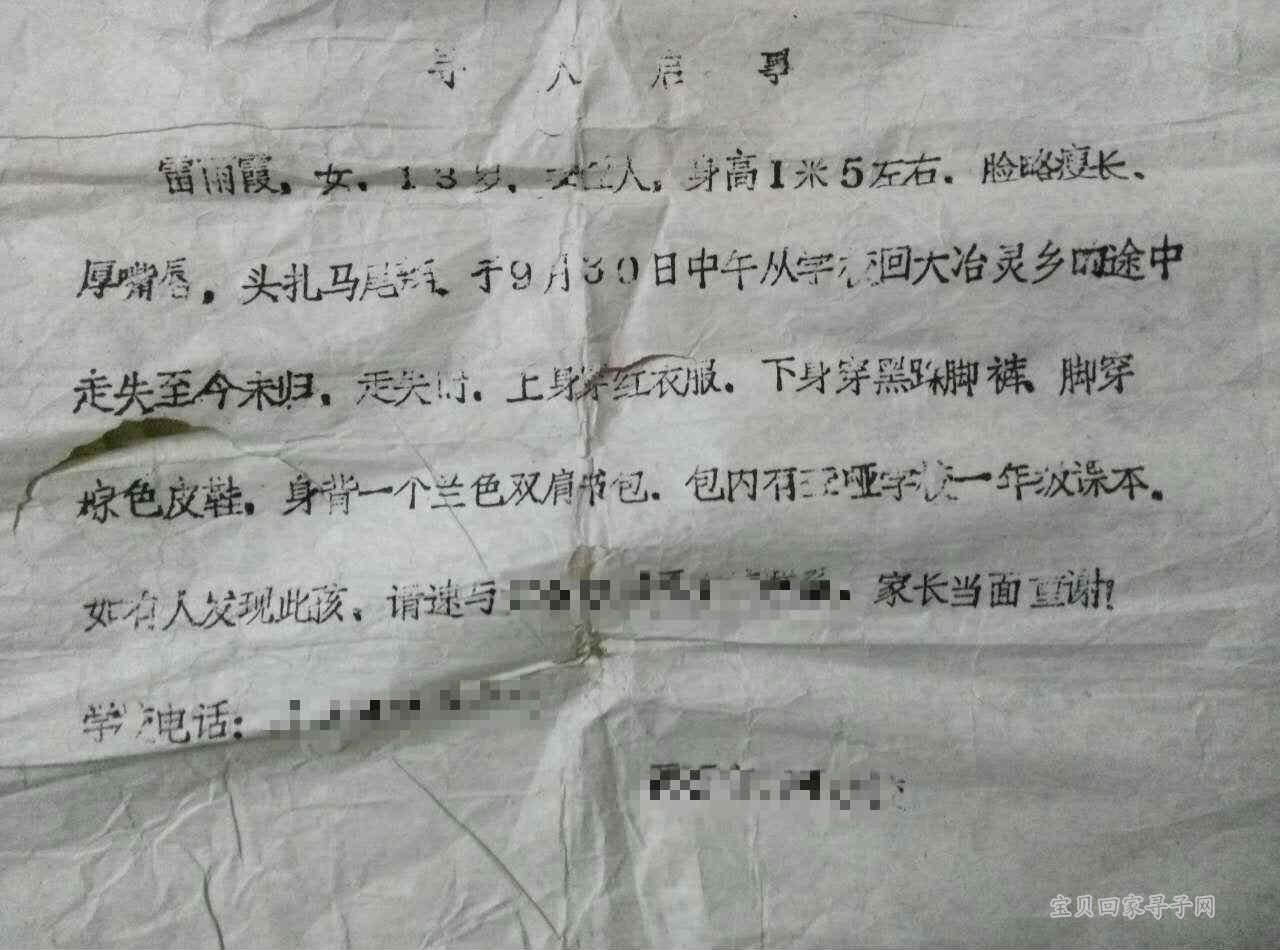 寻人启事
雷雨霞,女,13岁,人,身高1米5左右,脸略瘦长、
厚嘴唇,头扎马尾辫、于9月30日中午从学校回大冶灵乡的途中
走失至今未归,走失时,上身穿红衣服,下身穿黑踩脚裤、脚穿
棕色皮鞋,身背一个兰色双肩书包,包内有聋哑学校一年级课本。
如有人发现此孩、请速与,家长当面重谢!
学校电话:
宝贝回家寻子网